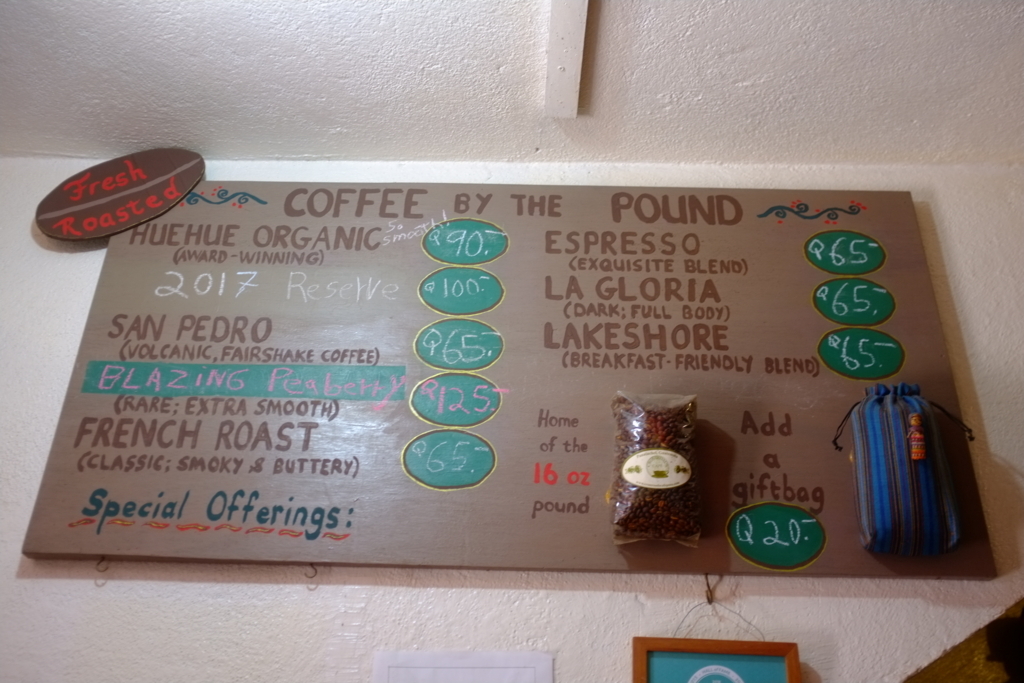 Fresh
Roasted
COFFEE BY THE POUND
HUEHUE ORGANIC So smooth! Q90.-
(AWARD-WINNING)
2017 Reserve Q100.-
SAN PEDRO Q65.-
(VOLCANIC, FAIRSHAKE COFFEE)
BLAZING Peaberry Q125.-
(RARE; EXTRA SMOOTH)
FRENCH ROAST Q65.-
(CLASSIC; SMOKY & BUTTERY)
Special Offerings:
ESPRESSO Q65.-
(EXQUISITE BLEND)
LA GLORIA Q65.-
(DARK; FULL BODY)
LAKESHORE Q65.-
(BREAKFAST-FRIENDLY BLEND)
Home
of the
16 oz
pound
Add
a
giftbag
Q20.-